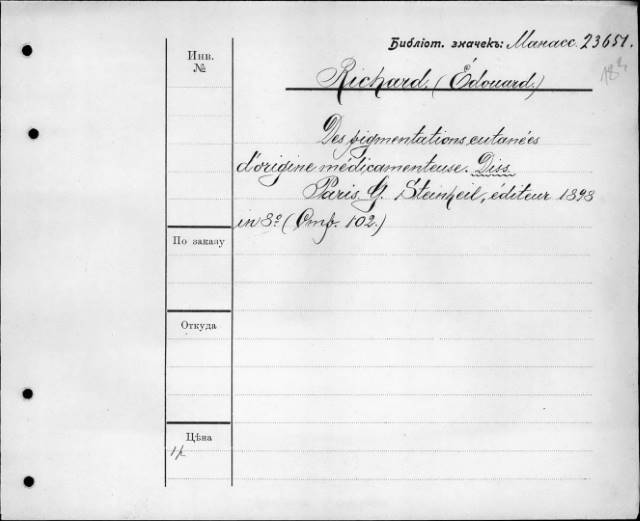 Библіот. значекъ: Манасс. 23651.
Инв. №
Richard. (Édouard.)
Des pigmentations cutanées
d'origine médicamenteuse. Diss.
Paris. G. Steinheil, éditeur 1898
in 8º (Стр. 102.)
По заказу
Откуда
Цѣна
1 р